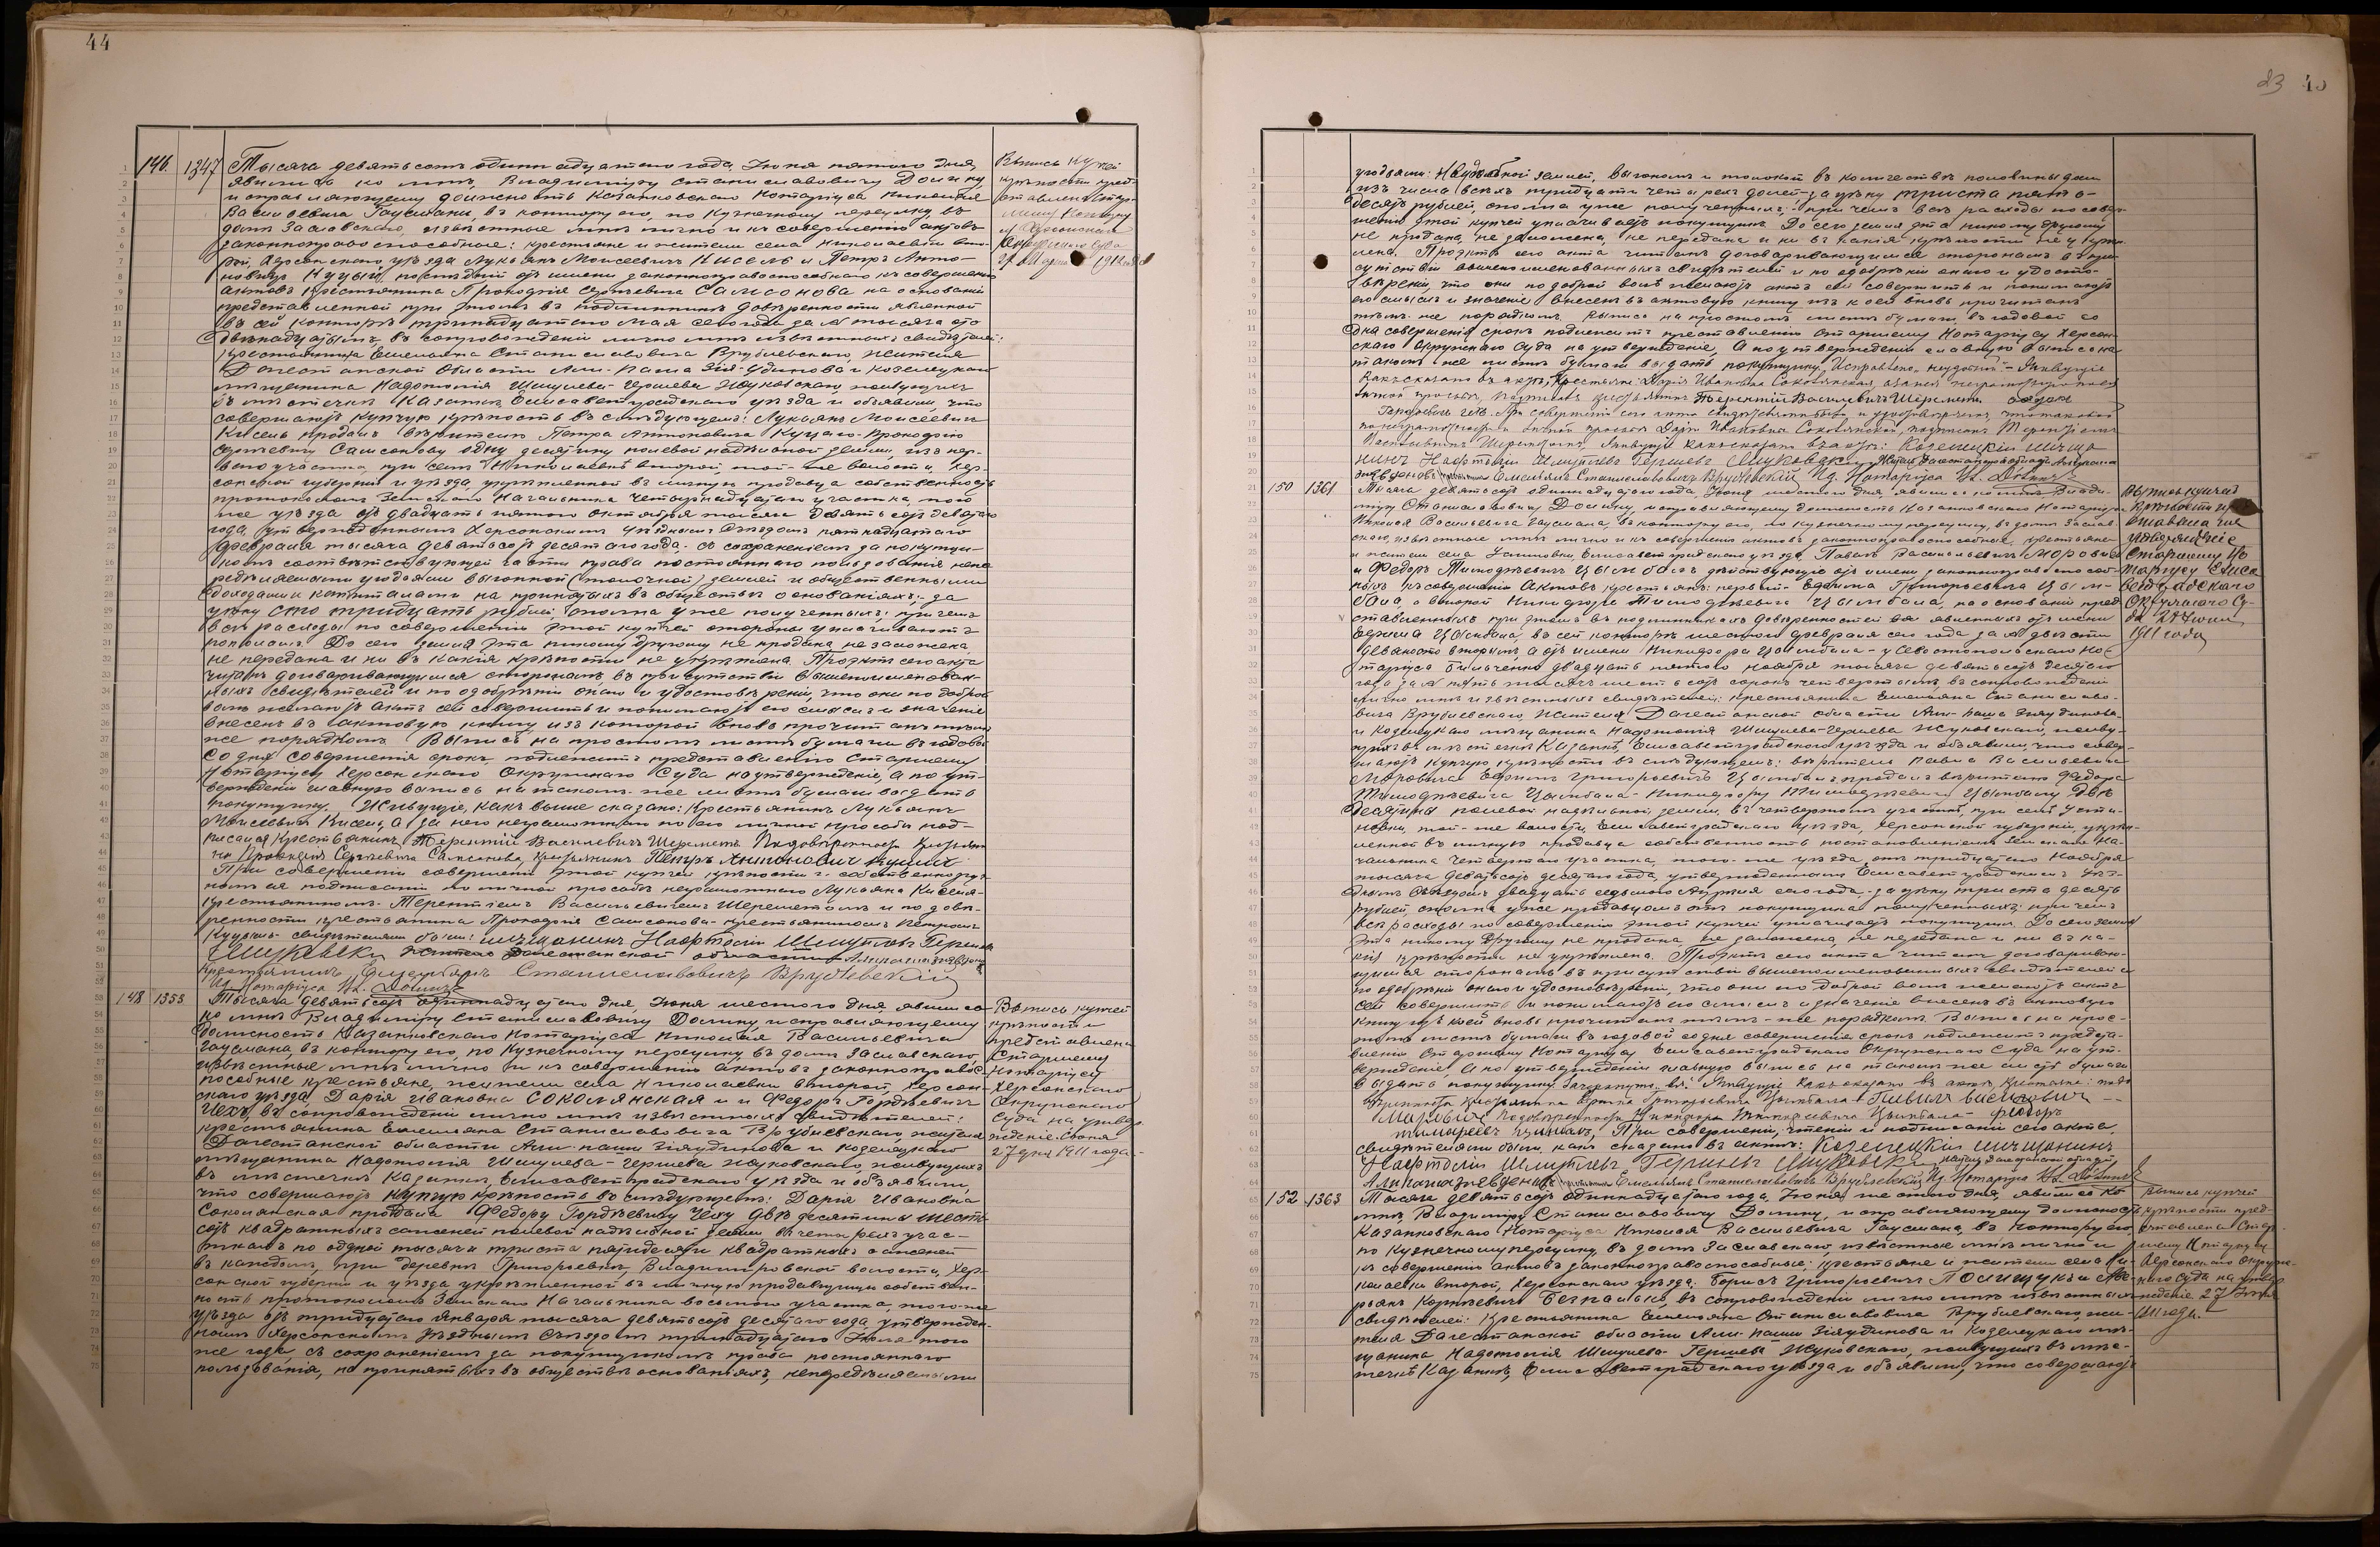 44
146. 1347 Тысяча девятьсотъ одиннадцатаго года, Іюня пятаго дня,
явились ко мнѣ, Владиміру Станиславовичу Долину,
исправляющему должность Казанковскаго Нотаріуса Николая
Васильевича Гаусмана, въ контору его, по Кузнечному переулку, въ
домѣ Заславскаго, извѣстные мнѣ лично и къ совершенію актовъ
законноправоспособные: крестьяне и жители села Николаевки вто-
рой, Херсонскаго уѣзда Лукьянъ Моисеевичъ Кисель и Петръ Анто-
новичъ Куцый, послѣдній отъ имени законноправоспособнаго къ совершенію
актовъ крестьянина Прокофія Сергѣевича Самсонова на основаніи
представленной при этомъ въ подлинникѣ довѣренности явленной
въ сей конторѣ тринадцатаго Мая сего года за № тысяча сто
двѣнадцатымъ, въ сопровожденіи лично мнѣ извѣстныхъ свидѣтелей:
крестьянина Емельяна Станиславовича Врублевскаго, жителя
Дагестанской Области Али-Паша Зія-Удинова и Козелецкаго
мѣщанина Нафтолія Шмуилева-Гершева Жуковскаго, живущихъ
въ мѣстечкѣ Казанкѣ, Елисаветградскаго уѣзда и объявили, что
совершаютъ купчую крѣпость въ слѣдующемъ: Лукьянъ Моисеевичъ
Кисель продалъ вѣрителю Петра Антоновича Куцаго-Прокофію
Сергѣевичу Самсонову одну десятину полевой надѣльной земли, изъ пер-
ваго участка, при селѣ Николаевкѣ второй, той-же волости, Хер-
сонской губерніи и уѣзда, укрѣпленной въ личную продавца собственность
протоколомъ Земскаго Начальника четырнадцатаго участка, того
же уѣзда отъ двадцать пятаго октября тысяча девятьсотъ девятаго
года, утвержденнымъ Херсонскимъ Уѣзднымъ Съѣздомъ пятнадцатаго
февраля тысяча девятьсотъ десятаго года, съ сохраненіемъ за покупщи-
комъ соотвѣтствующей части права постояннаго пользованія непе-
редѣляемыми угодьями выгонной (толочной) землей и общественными
доходами и капиталами на принятыхъ въ обществѣ основаніяхъ; за
цѣну сто тридцать рублей, сполна уже полученныхъ; при чемъ
всѣ расходы по совершенію этой купчей стороны уплачиваютъ
пополамъ. До сего земля эта никому другому не продана, не заложена,
не передана и ни въ какія крѣпости не укрѣплена. Проэктъ сего акта
читанъ договаривающимся сторонамъ, въ присутствіи вышепоименован-
ныхъ свидѣтелей и по одобреніи онаго и удостовѣреніи, что они по доброй
волѣ желаютъ актъ сей совершить и понимаютъ его смыслъ и значеніе
внесенъ въ актовую книгу изъ которой вновь прочитанъ тѣмъ-
же порядкомъ. Выпись на простомъ листѣ бумаги въ годовой
со дня совершенія срокъ подлежитъ представленію Старшему
Нотаріусу Херсонскаго Окружнаго Суда на утвержденіе, а по ут-
вержденіи главную выпись на такомъ-же листѣ бумаги выдать
покупщику. Жительствуютъ, какъ выше сказано: Крестьянинъ Лукьянъ
Моисеевичъ Кисель, а за него неграмотнаго по его личной просьбѣ под-
писался крестьянинъ Терентій Васильевичъ Шереметъ. По довѣренности крестьяни-
на Прокофія Сергѣевича Самсонова, крестьянинъ Петръ Антоновичъ Куцый
При совершеніи совершеніи этой купчей крѣпости и собственноруч-
номъ ея подписаніи по личной просьбѣ неграмотнаго Лукьяна Киселя-
крестьяниномъ Терентіемъ Васильевичемъ Шереметомъ и по довѣ-
ренности крестьянина Прокофія Самсонова-крестьяниномъ Петромъ
Куцымъ-свидѣтелями были: мѣщанинъ Нафтолій Шмуилевъ Гершевъ
Жуковскій Житель Дагестанской области Алипаша Зіяудиновъ
Крестьянинъ Емельянъ Станиславовичъ Врублевскій
И.д. Нотаріуса Вл. Долинъ
Выпись купчей
крѣпости пред-
ставлена Стар-
шему Нотаріусу
Херсонскаго
Окружнаго Суда
1912 года
148 1353 Тысяча девятьсотъ одиннадцатаго дня, Іюня шестого дня, явились
ко мнѣ Владиміру Станиславовичу Долину, исправляющему
должность Казанковскаго Нотаріуса Николая Васильевича
Гаусмана, въ контору его, по Кузнечному переулку, въ домѣ Заславскаго,
извѣстные мнѣ лично и къ совершенію актовъ законноправос-
пособные крестьяне, жители села Николаевки второй, Херсон-
скаго уѣзда, Дарія Ивановна СОКОЛЯНСКАЯ и Федоръ Гордѣевичъ
Чехъ, въ сопровожденіи лично мнѣ извѣстныхъ свидѣтелей:
крестьянина Емельяна Станиславовича Врублевскаго, жителя
Дагестанской области Али-паши Зіяудинова и Козелецкаго
мѣщанина Нафтолія Шмуилева-Гершева Жуковскаго, живущихъ
въ мѣстечкѣ Казанкѣ, Елисаветградскаго уѣзда и объявили,
что совершаютъ купчую крѣпость въ слѣдующемъ: Дарія Ивановна
Соколянская продала Федору Гордѣевичу Чеху двѣ десятины шесть-
сотъ квадратныхъ саженей полевой надѣльной земли въ четырехъ учас-
ткахъ по одной тысячи триста пятидесяти квадратныхъ саженей
въ каждомъ, при деревнѣ Григорьевкѣ, Владиміровской волости, Хер-
сонской губерніи и уѣзда укрѣпленной въ личную продавщицы собствен-
ность протоколомъ Земскаго Начальника восьмого участка, того-же
уѣзда отъ тридцатаго Января тысяча девятьсотъ десятаго года, утвержден-
нымъ Херсонскимъ Уѣзднымъ Съѣздомъ тринадцатаго Іюля того
же года, съ сохраненіемъ за покупщикомъ права постояннаго
пользованія, на принятыхъ въ обществѣ основаніяхъ, непередѣляемыми
Выпись купчей
крѣпости
представлена
Старшему
Нотаріусу
Херсонскаго
Окружнаго
Суда на утвер-
жденіе Іюня
27 дня 1911 года
23 45
угодьями: неудобной землей, выгономъ и толокой въ количествѣ половины доли
изъ числа всѣхъ тридцати четырехъ долей-за цѣну триста пять-
десятъ рублей, сполна уже полученныхъ; при чемъ всѣ расходы по совер-
шенію этой купчей уплачиваетъ покупщикъ. До сего земля эта никому другому
не продана, не заложена, не передана и ни въ какія крѣпости не укрѣп-
лена. Проэктъ сего акта читанъ договаривающимся сторонамъ въ при-
сутствіи вышепоименованныхъ свидѣтелей и по одобреніи онаго и удосто-
вѣреніи, что они по доброй волѣ желаютъ актъ сей совершить и понимаютъ
его смыслъ и значеніе внесенъ въ актовую книгу изъ коей вновь прочитанъ
тѣмъ-же порядкомъ. Выпись на простомъ листѣ бумаги, въ годовой со
дня совершенія срокъ подлежитъ представленію Старшему Нотаріусу Херсон-
скаго Окружнаго Суда на утвержденіе, а по утвержденіи главную выпись на
такомъ-же листѣ бумаги выдать покупщику. Исправлено: неудобной.
какъ сказано въ актѣ, Крестьяне: Дарія Ивановна Соколянская, а за нея неграмотную по ея
личной просьбѣ, подписался крестьянинъ Терентій Васильевичъ Шереметъ Федоръ
Гордѣевичъ Чехъ. При совершеніи сего акта
по неграмотности и личной просьбѣ Дарьи Ивановны Соколянской, подписанъ Терентіемъ
Васильевичемъ Шереметомъ какъ сказано въ актѣ: Козелецкій мѣща-
нинъ Нафтолій Шмуилевъ Гершевъ Жуковскій Житель Дагестанской области Алипаша
Зіяудиновъ Крестьянинъ Емельянъ Станиславовичъ Врублевскій И.д. Нотаріуса Вл. Долинъ
150 1361 Тысяча девятьсотъ одиннадцатаго года, Іюня шестого дня, явились ко мнѣ Влади-
міру Станиславовичу Долину, исправляющему должность Казанковскаго Нотаріуса
Николая Васильевича Гаусмана, въ контору его, по Кузнечному переулку, въ домѣ Заслав-
скаго, извѣстные мнѣ лично и къ совершенію актовъ законноправоспособные, крестьяне
и жители села Устиновки, Елисаветградскаго уѣзда, Павелъ Васильевичъ Моровичъ
и Федоръ Тимофѣевичъ Цымбалъ дѣйствующіе отъ имени законноправоспособ-
ныхъ къ совершенію Актовъ крестьянъ: первый-Ефрема Григорьевича Цым-
бала, а второй Никифора Тимофѣевича Цымбала, на основаніи пред-
ставленныхъ при этомъ въ подлинникахъ довѣренностей явленныхъ отъ имени
Ефрема Цымбала, въ сей конторѣ шестого февраля сего года за № двѣсти
девяносто вторымъ, а отъ имени Никифора Цымбала-у Севастопольскаго Но-
таріуса Бильченко двадцать пятаго ноября тысяча девятьсотъ десятаго
года за № пять тысячъ шестьсотъ сорокъ четвертымъ, въ сопровожденіи
лично мнѣ извѣстныхъ свидѣтелей: крестьянина Емельяна Станиславо-
вича Врублевскаго, жителя Дагестанской области Али-Паша Зіяудинова
и Козелецкаго мѣщанина Нафтолія Шмуилева-Гершева Жуковскаго, живу-
щихъ въ мѣстечкѣ Казанкѣ, Елисаветградскаго уѣзда и объявили, что совер-
шаютъ купчую крѣпость въ слѣдующемъ: вѣритель Павла Васильевича
Моровича Ефремъ Григорьевичъ Цымбалъ, продалъ вѣрителю Федора
Тимофѣевича Цымбала-Никифору Тимофѣевичу Цымбалу двѣ
десятины полевой надѣльной земли, въ четвертомъ участкѣ, при селѣ Усти-
новкѣ, той-же волости, Елисаветградскаго уѣзда, Херсонской губерніи, укрѣп-
ленной въ личную продавца собственность постановленіемъ Земскаго На-
чальника четвертаго участка, того-же уѣзда, отъ тридцатаго Ноября
тысяча девятьсотъ десятаго года, утвержденнымъ Елисаветградскимъ Уѣз-
днымъ Съѣздомъ двадцать седьмого Апрѣля сего года-за цѣну триста десять
рублей, сполна уже продавцомъ отъ покупщика полученныхъ; при чемъ
всѣ расходы по совершенію этой купчей уплачиваетъ покупщикъ. До сего земля
эта никому другому не продана, не заложена, не передана и ни въ ка-
кія крѣпости не укрѣплена. Проэктъ сего акта читанъ договариваю-
щимся сторонамъ въ присутствіи вышепоименованныхъ свидѣтелей и
по одобреніи онаго и удостовѣреніи, что они по доброй волѣ желаютъ актъ
сей совершить и понимаютъ его смыслъ и значеніе внесенъ въ актовую
книгу изъ коей вновь прочитанъ тѣмъ-же порядкомъ. Выпись на прос-
томъ листѣ бумаги въ годовой со дня совершенія срокъ подлежитъ представ-
ленію Старшему Нотаріусу Елисаветградскаго Окружнаго Суда на ут-
вержденіе, а по утвержденіи главную выпись на такомъ-же листѣ бумаги
выдать покупщику. Зачеркнуто: въ. какъ сказано въ актѣ, Крестьяне: по до-
вѣренности крестьянина Ефрема Григорьевича Цымбала-Павелъ Васильевичъ
Моровичъ По довѣренности Никифора Тимофѣевича Цымбала-Федоръ
Тимофеевъ Цимбалъ, При совершеніи, чтеніи и подписаніи сего акта,
свидѣтелями были, какъ сказано въ актѣ: Козелецкій мѣщанинъ
Нафтолій Шмуилевъ Гершевъ Жуковскій Житель Дагестанской области
Алипаша Зіяудиновъ Крестьянинъ Емельянъ Станиславовичъ Врублевскій И.д. Нотаріуса Вл. Долинъ
Выпись купчей
крѣпости пред-
ставлена на
утвержденіе
Старшему Но-
таріусу Елиса-
ветградскаго
Окружнаго Су-
да 27 Іюня
1911 года
152 1363 Тысяча девятьсотъ одиннадцатаго года, Іюня шестого дня, явились ко
мнѣ, Владиміру Станиславовичу Долину, исправляющему должность
Казанковскаго Нотаріуса Николая Васильевича Гаусмана, въ контору его,
по Кузнечному переулку, въ домѣ Заславскаго, извѣстные мнѣ лично и
къ совершенію актовъ законноправоспособные: крестьяне и жители села Ни-
колаевки второй, Херсонскаго уѣзда: Борисъ Григорьевичъ ПОЛИЩУКЪ и Аве-
рьянъ Корнѣевичъ Безпалько, въ сопровожденіи лично мнѣ извѣстныхъ
свидѣтелей: Крестьянина Емельяна Станиславовича Врублевскаго, жи-
теля Дагестанской области Али-паши Зіяудинова и Козелецкаго мѣ-
щанина Нафтолія Шмуилева-Гершева Жуковскаго, живущихъ въ мѣс-
течкѣ Казанкѣ, Елисаветградскаго уѣзда и объявили, что совершаютъ
Выпись купчей
крѣпости пред-
ставлена Стар-
шему Нотаріусу
Херсонскаго Окруж-
наго Суда на утвер-
жденіе 27 Іюня
1911 года.